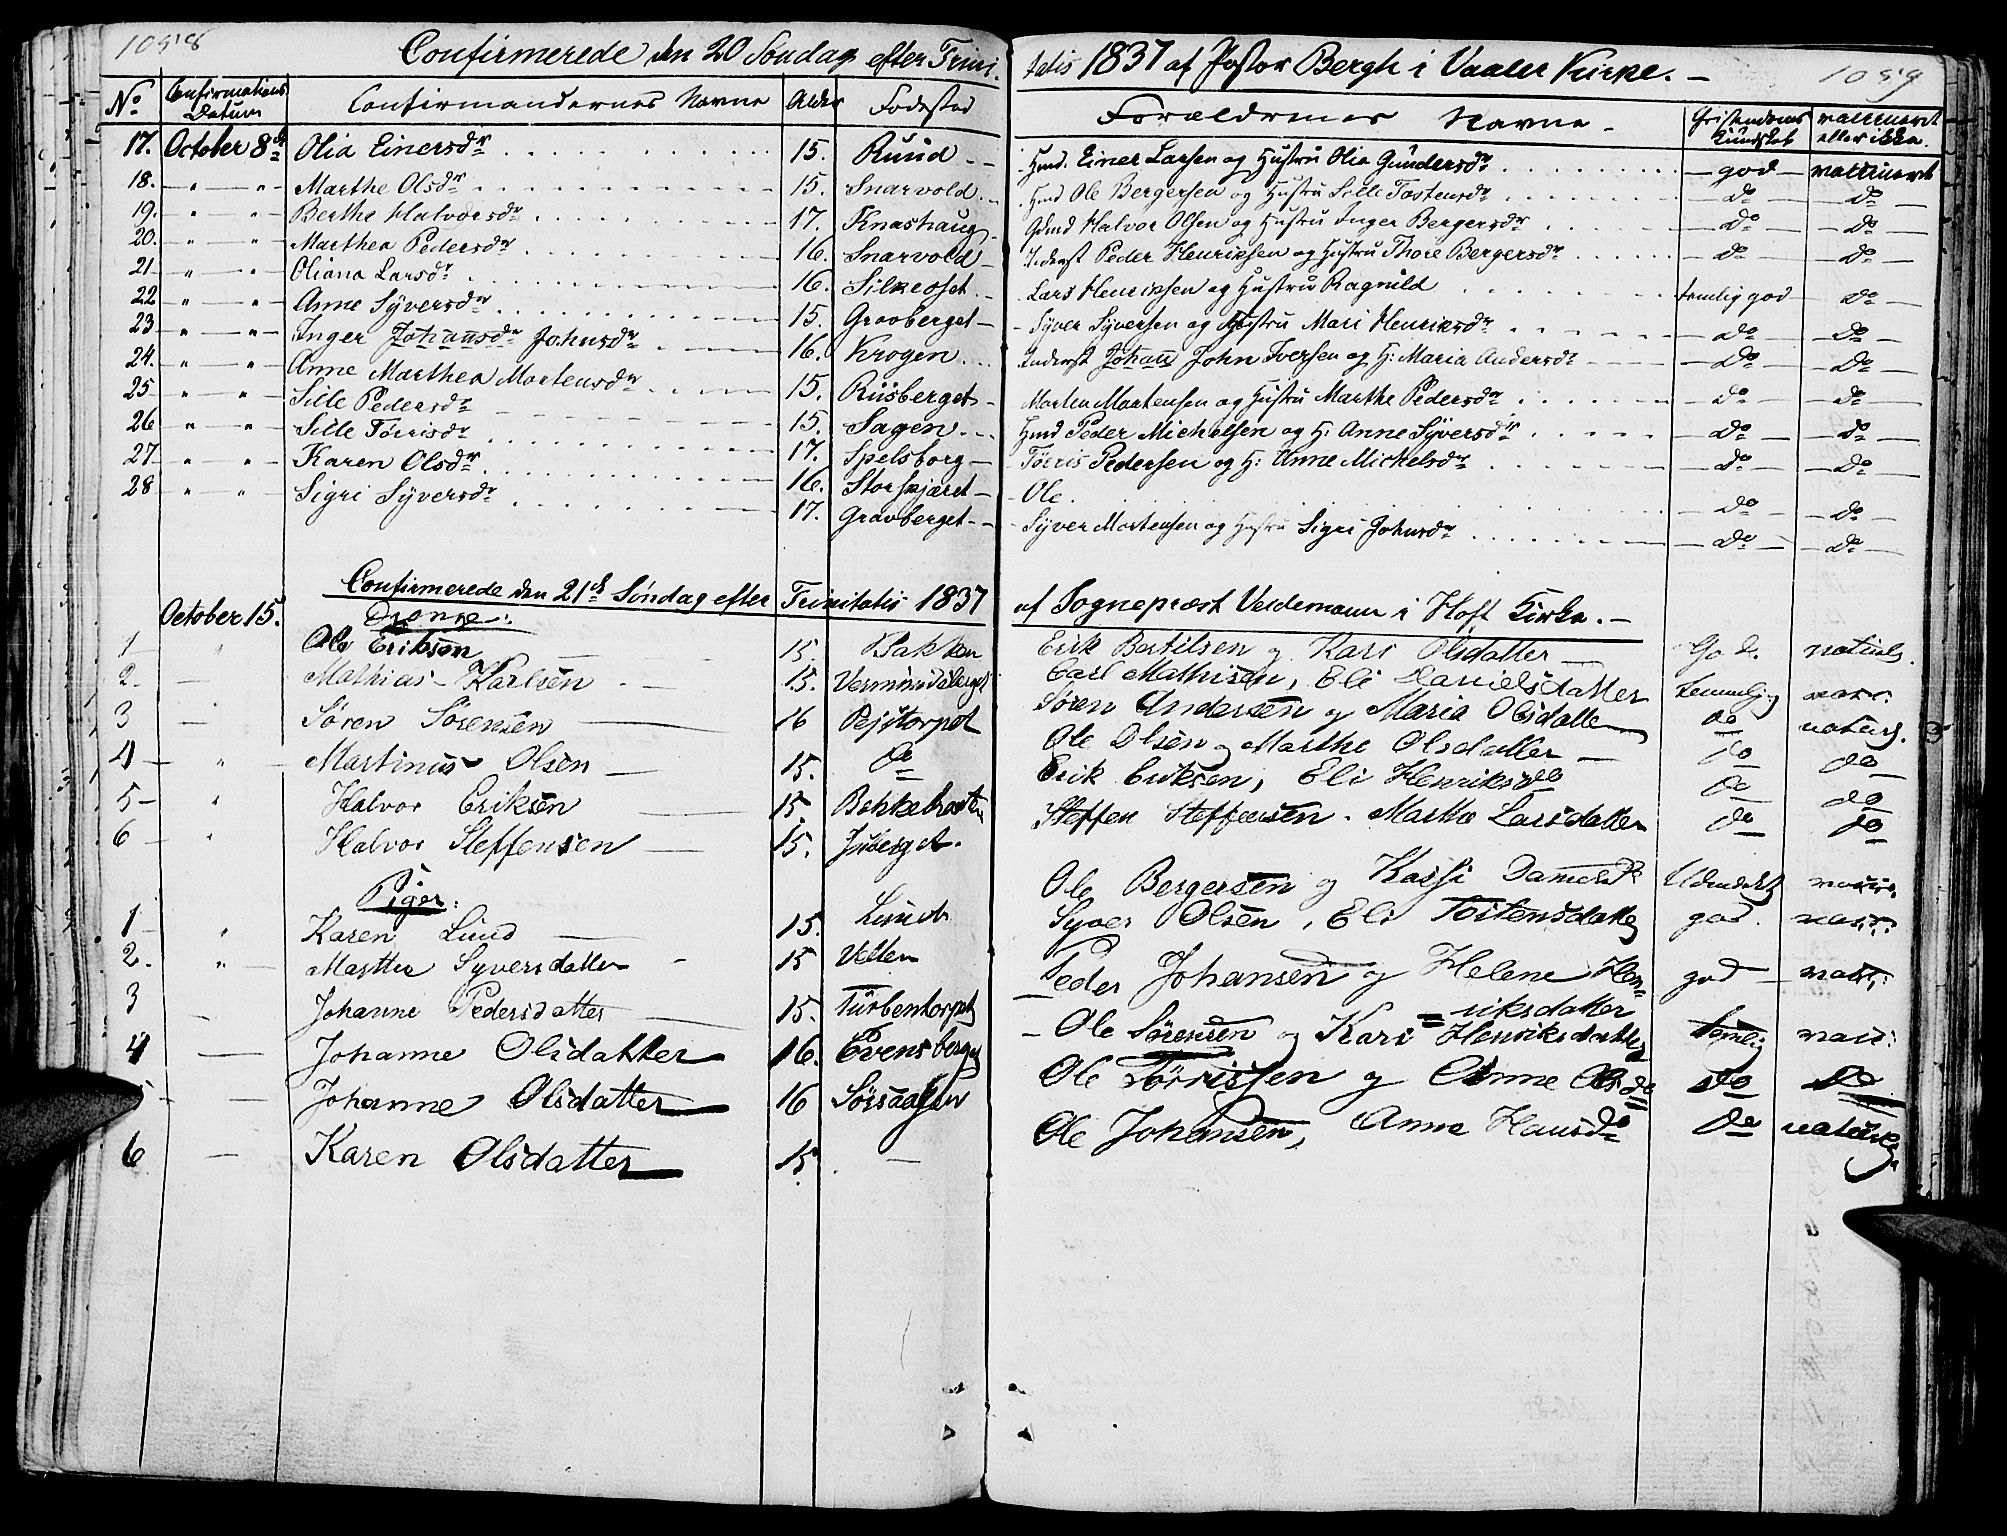 1058
Confirmerede den 20 Søndag efter Trini-
tatis 1837 af Pastor Bergh i Vaaler Kirke. -
1059
No Confirmations Datum Confirmandernes Navne Alder Fødested Forældrenes Navne - Cristendoms Kundskab vaccineret eller ikke.
17. October 8de Olia Einersdr 15. Ruud Hmd. Einer Larsen og Hustru Olia Gundersdr god vaccineret
18. " " Marthe Olsdr 15. Snarvold Hmd Ole Bergersen og Hustru Sille Tostensdr do do
19. " " Berthe Halvorsdr 17. Knashaug Gdmd Halvor Olsen og Hustru Inger Bergersdr do do
20. " " Marthea Pedersdr 16. Snarvold Inderst Peder Henriksen og Hustru Thore Bergersdr do do
21 " " Oliana Larsdr 16. Silkeoset Lars Henriksen og Hustru Ragnild temlig god do
22 " " Anne Syversdr 15. Gravberget Syver Syversen og Hustru Mari Henriksdr do do
23 " " Inger Johansdr Johnsdr 16. Krogen Inderst Johan John Iversen og H: Maria Andersdr do do
24. " " Anne Marthea Mortensdr 15. Riisberget Morten Mortensen og Hustru Marthe Pedersdr do do
25 " " Sille Pedersdr 15. Sagen Hmd Peder Michelsen og H: Anne Syversdr do do
26 " " Sille Tørrisdr 17. Spelsborg Tørris Pedersen og H: Anne Mickelsdr do do
27 " " Karen Olsdr 16. Storskjæret Ole do do
28 " " Sigri Syversdr 17. Gravberget Syver Mortensen og Hustru Sigri Johnsdr do do
Confirmerede den 21de Søndag efter Trinitatis 1837 af Sognepræst Veidemann i Hoff Kirke. -
October 15. Drenge:
1 " Ole Erikson 15. Bakken Erik Bertilsen og Kari Olsdatter God.
2. Mathias Karlsen 15. Vermundsberget Carl Mathisen, Eli Danielsdatter temmelig vacc:
3 Søren Sørensen 16 Pejstorpet Søren Andersen og Maria Olsdatter do
4 " Martinus Olsen 15. do Ole Olsen og Marthe Olsdatter do do
5 " Halvor Eriksen 15. Erik Eriksen, Eli Henriksdr do do
6 " Halvor Steffensen 15. Steffen Steffensen. Marthe Larsdatter do do
Piger:
1 " Karen Lund 15. Lund Ole Bergersen og Kassi vacc:
2. " Marthea Syversdatter 15 Velten Syver Olsen, Eli Tostensdatter god. vacc:
3 Johanne Pedersdatter 15. Turbentorpet Peder Johansen og Helene Hen=
riksdatter god vacc:
4 Johanne Olsdatter 16. Evensberget Ole Sørensen og Kari Henriksdatter temlig vacc:
5 Johanne Olsdatter 16 Ole Tørrissen og Anne Olsdr do do
6 Karen Olsdatter 15. Ole Johansen, Anne Hansdr do